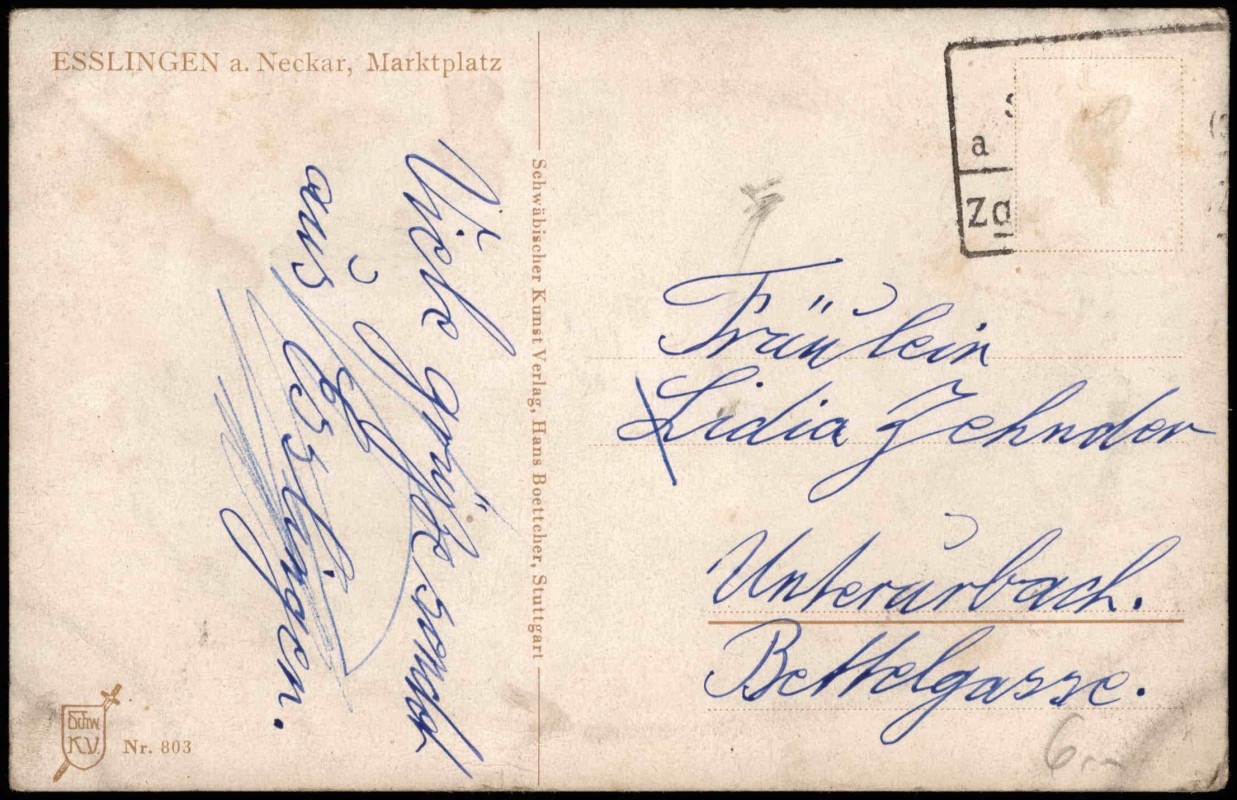 ESSLINGEN a. Neckar, Marktplatz
Viele grüße sendet
aus Esslingen.
Schwäbischer Kunst Verlag, Hans Boettcher, Stuttgart
a
Za
Fräulein
Lidia Zehnder
Unterurbach.
Bettelgasse.
Schw.
K.V.
Nr. 803
6.—